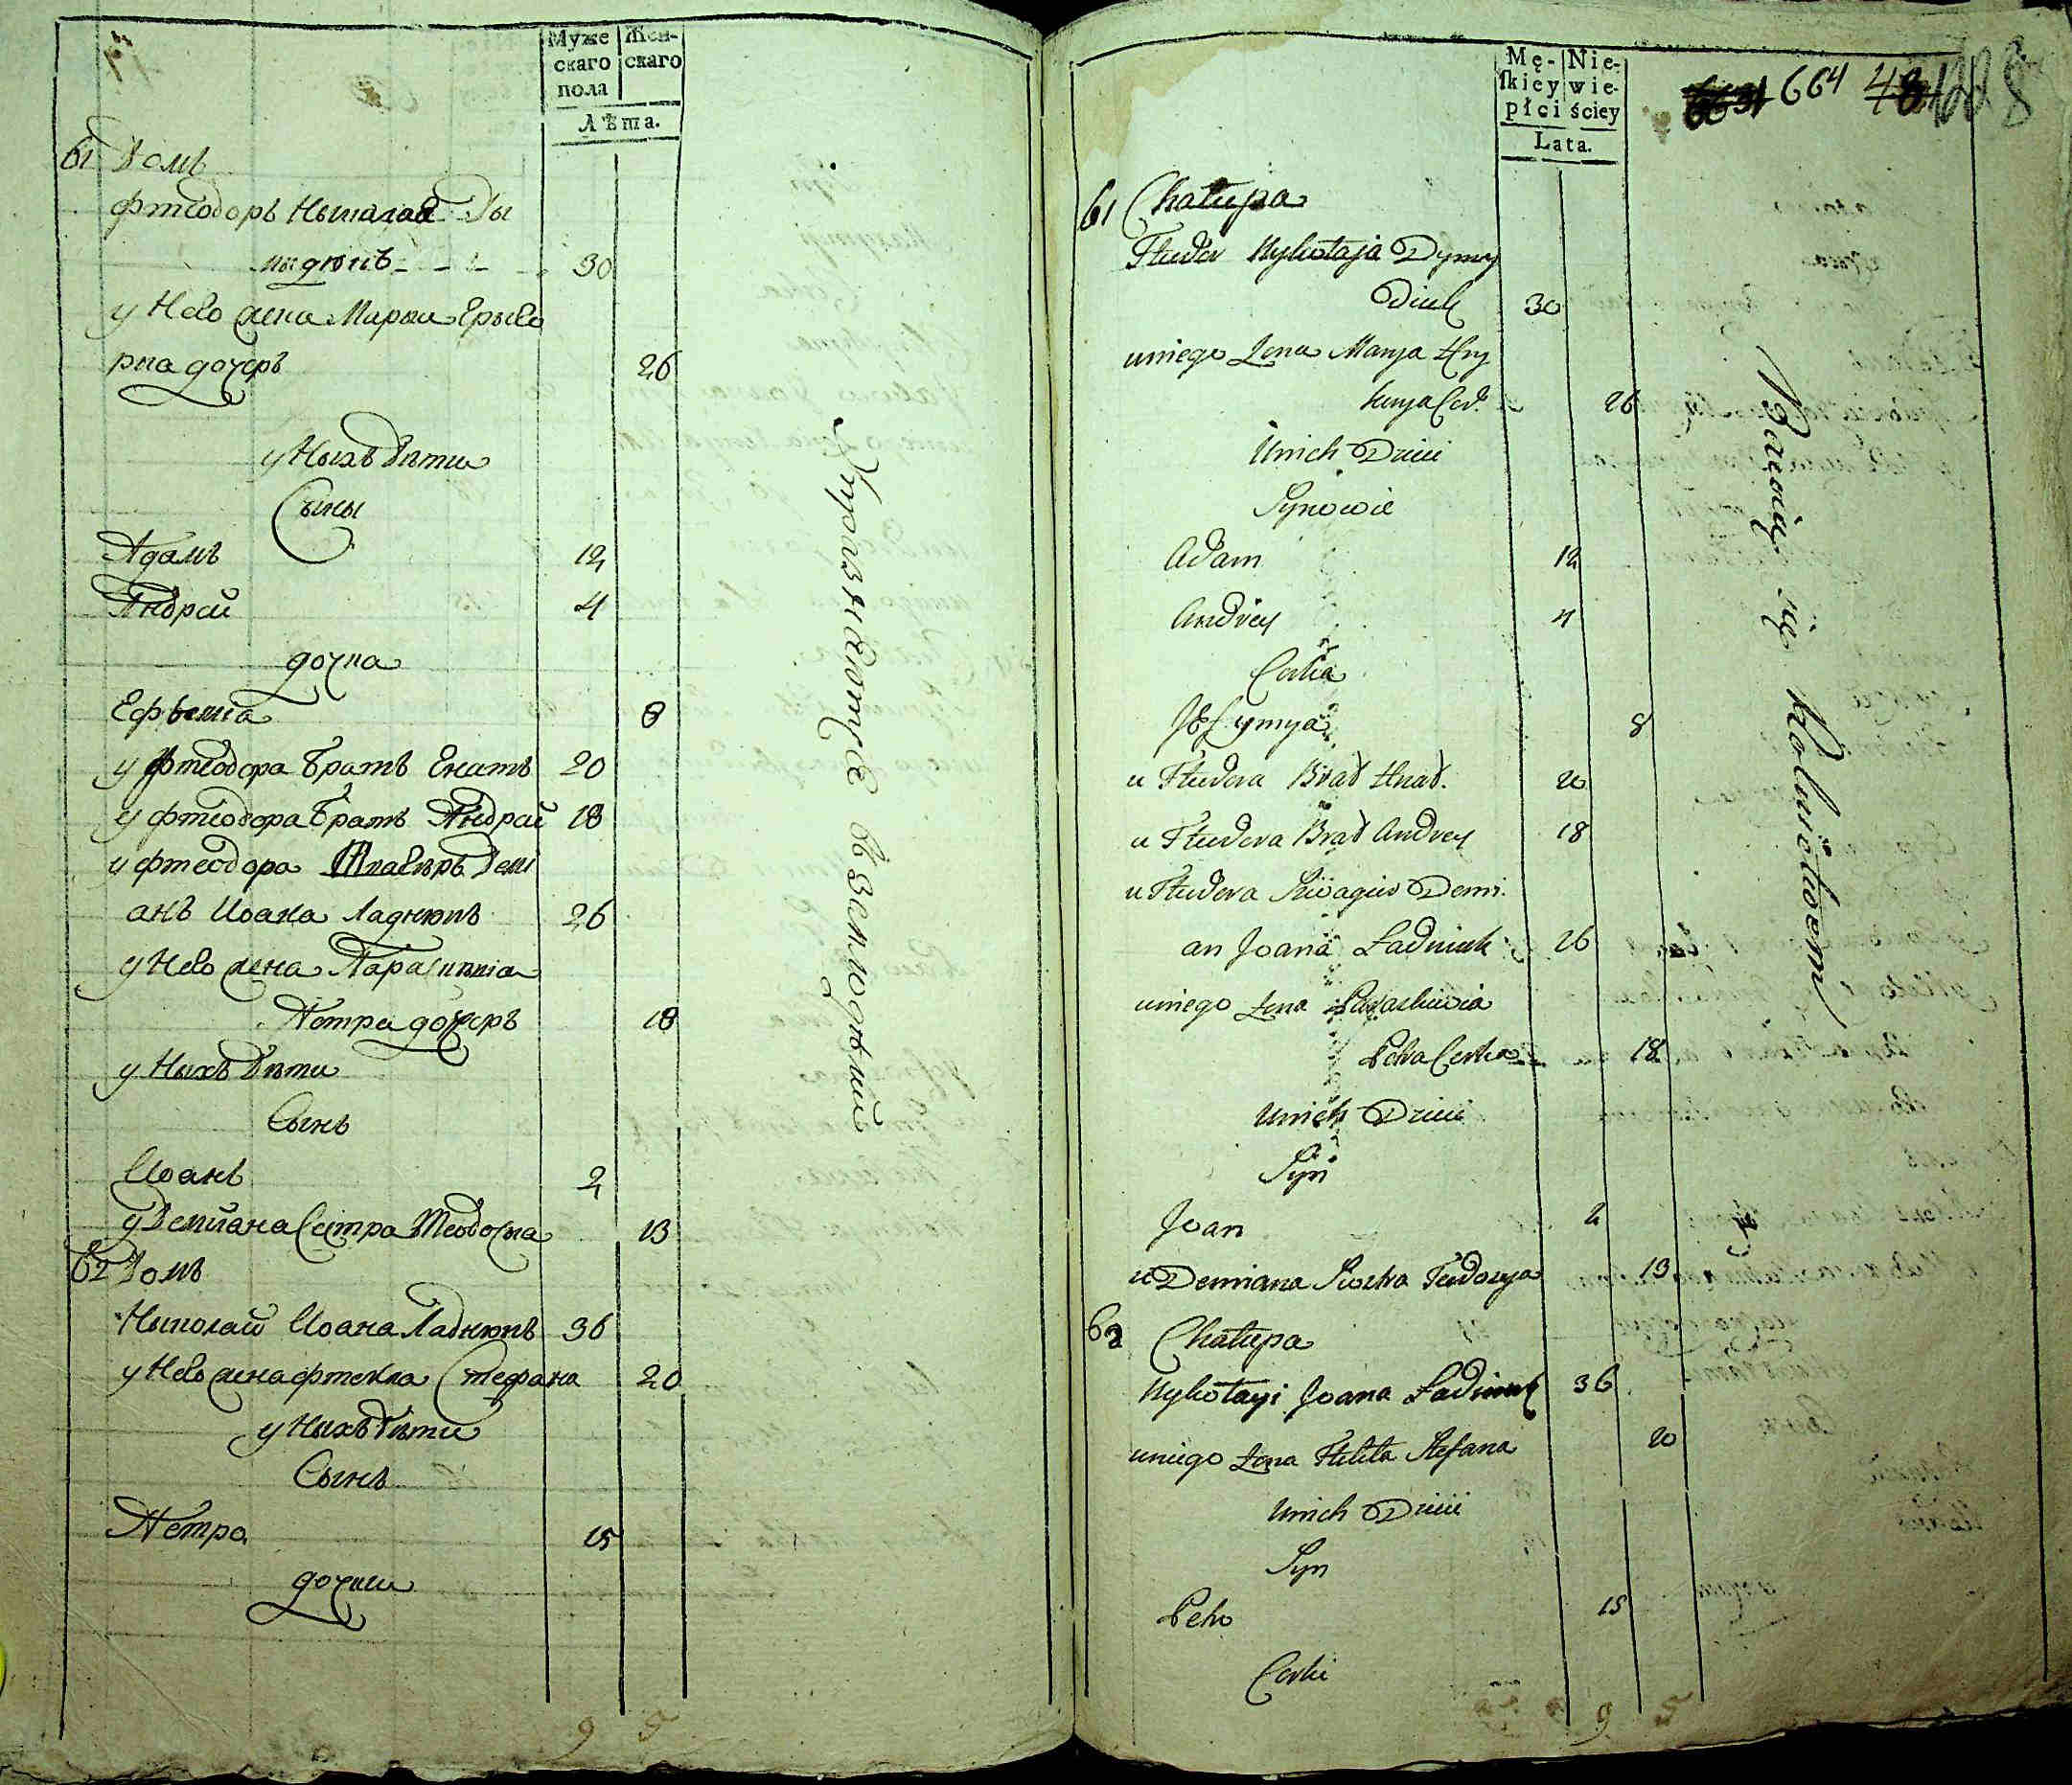 Муже
скаго
пола
Жен-
скаго
Лѣта.
61 Домъ
Фтеодоръ Николая Ды
мидюкъ 30
у Него жена Марыя Грыго
рка дочеръ 26
у Ныхъ дѣти
Сыны
Адамъ 12
Андрей 4
дочка
Ефѣмiа 8
у Фтеодора братъ Гнатъ 20
у Фтеодора братъ Андрей 18
у Фтеодора Шваґеръ Деми
анъ Иоана Ладнюкъ 26
у Него жена Параскевiа
Петра дочеръ 18
у Ныхъ дѣти
Сынъ
Иоанъ 2
у Демiана Сестра Теодосиа 13
62 Домъ
Николай Иоана Ладнюкъ 36
у Него жена Фтекла Стефана 20
у Ныхъ дѣти
Сынъ
Петро 15
дочки
Упражняются в земледѣлии
9 5
Mę-
skiey
płci
Nie-
wie-
ściey
Lata.
664
61 Chałupa
Fteodor Mykołaja Dymy
diuk 30
u niego Żona Marya Hry
horya Cor. 26
U nich Dzieci
Synowie
Adam 12
Andrey 4
Corka
Jefymya 8
u Fteodora Brat Hnat. 20
u Fteodora Brat Andrey 18
u Fteodora Szwagier Demi
an Joana Ładniuk 26
u niego Żona Paraskiewia
Petra Corka 18
U nich Dzieci
Syn
Joan 2
u Demiana Siostra Teodozya 13
62 Chałupa
Mykołayi Joana Ładniuk 36
u niego Żona Ftekla Stefana 20
U nich Dzieci
Syn
Petro 15
Corki
Bawią się Rolnictwem
9 5